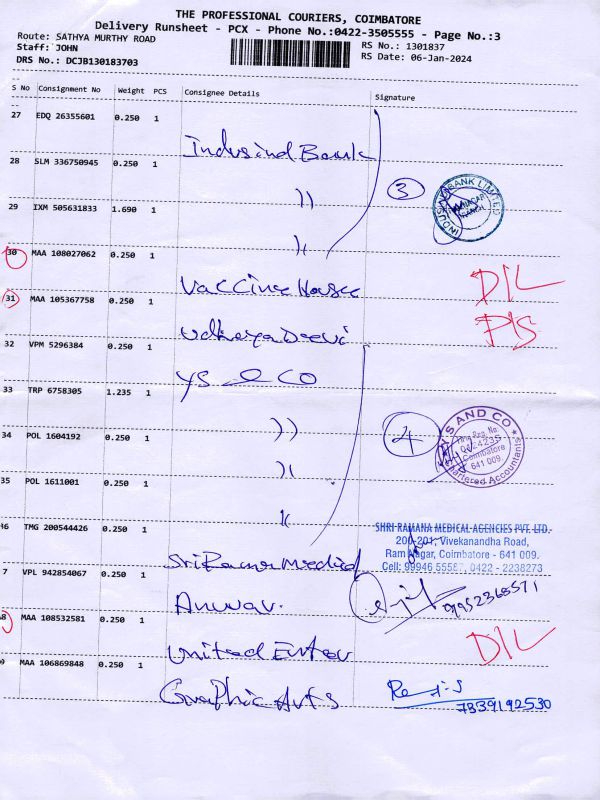 THE PROFESSIONAL COURIERS, COIMBATORE
Delivery Runsheet - PCX - Phone No.:0422-3505555 - Page No.:3
Route: SATHYA MURTHY ROAD RS No.: 1301837
Staff: JOHN RS Date: 06-Jan-2024
DRS No.: DCJB130183703
S No Consignment No Weight PCS Consignee Details Signature
27 EDQ 26355601 0.250 1 Indusind Bank
28 SLM 336750945 0.250 1 )) 3 INDUSIND BANK LIMITED
29 IXM 505631833 1.690 1 ))
30 MAA 108027062 0.250 1 Vaccine House D/L
31 MAA 105367758 0.250 1 Udhaya Deevi P/S
32 VPM 5296384 0.250 1 YS & CO
33 TRP 6758305 1.235 1 )) 4 S AND CO
34 POL 1604192 0.250 1 )) Coimbatore 641 009.
35 POL 1611001 0.250 1 Chartered Accountants
36 TMG 200544426 0.250 1 Sri Rama Medical
SHRI RAMANA MEDICAL AGENCIES PVT. LTD.
200-201, Vivekanandha Road,
Ram Nagar, Coimbatore - 641 009.
Cell: 99946 55567, 0422 - 2238273
7 VPL 942854067 0.250 1 Anwar. 9952368571
8 MAA 108532581 0.250 1 United Enter D/L
9 MAA 106869848 0.250 1 Graphic Arts 7339192530